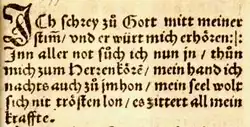 JCh schrey zů Gott mitt meiner
stim̃/ vnd er würt mich erhören:|:
Jnn aller not sůch ich nun jn/ thůn
mich zum Herren kören/ mein hand ich
nachts auch zů jm hon/ mein seel wolt
sich nit trösten lon/ es zittert all mein
kraffte.